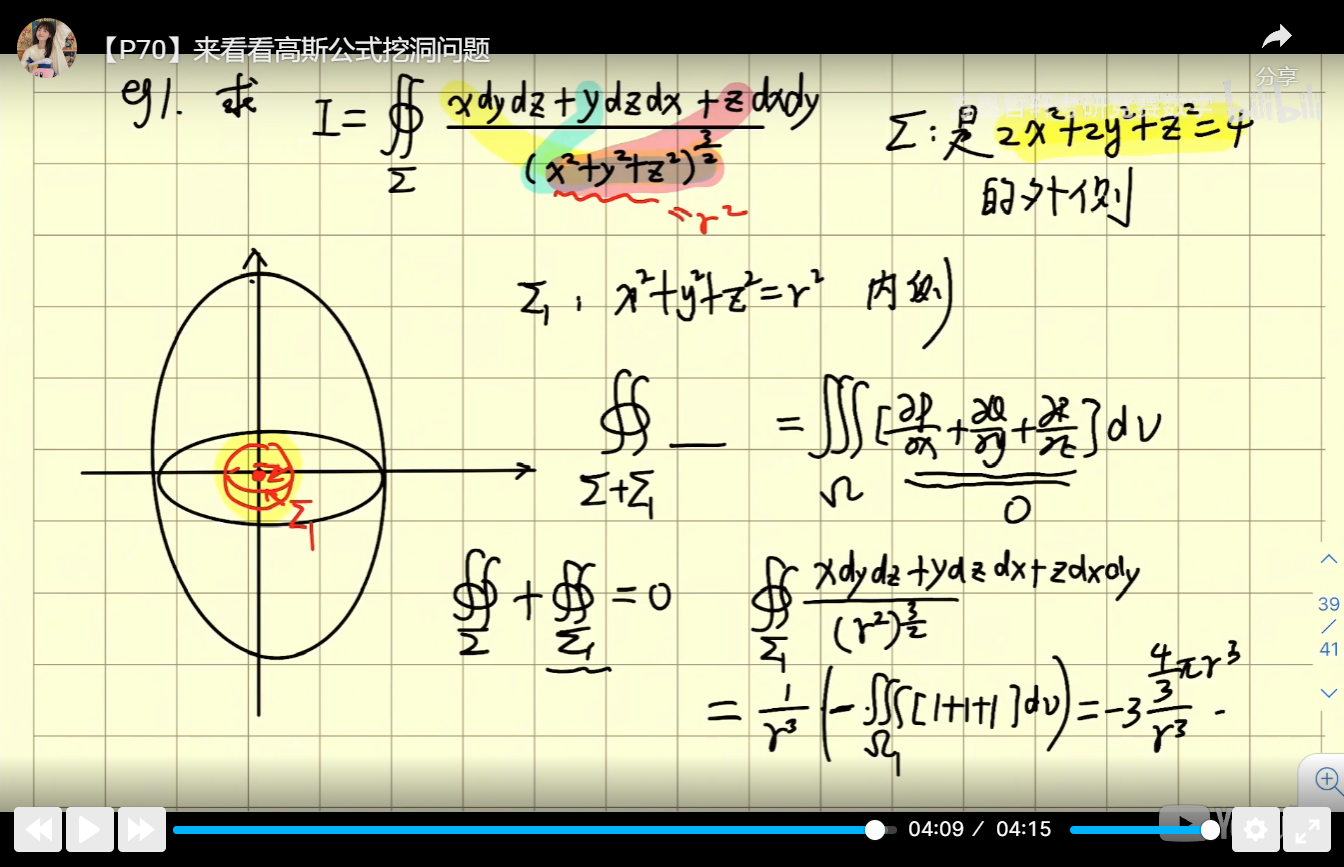 【P70】来看看高斯公式挖洞问题
分享
bilibili
eg1. 求 I = ∯_Σ (xdydz + ydzdx + zdxdy) / (x²+y²+z²)^(3/2) Σ: 是 2x²+2y²+z²=4
= r² 的外侧
Σ₁, x²+y²+z²=r² 内侧
∯_(Σ+Σ₁) __ = ∭_Ω [∂P/∂x + ∂Q/∂y + ∂R/∂z] dv
0
Σ₁
∯_Σ + ∯_Σ₁ = 0 ∯_Σ₁ (xdydz + ydzdx + zdxdy) / (r²)^(3/2)
= 1/r³ (-∭_Ω₁ [1+1+1] dv) = -3 (4/3 πr³) / r³ ·
39
/
41
04:09 / 04:15